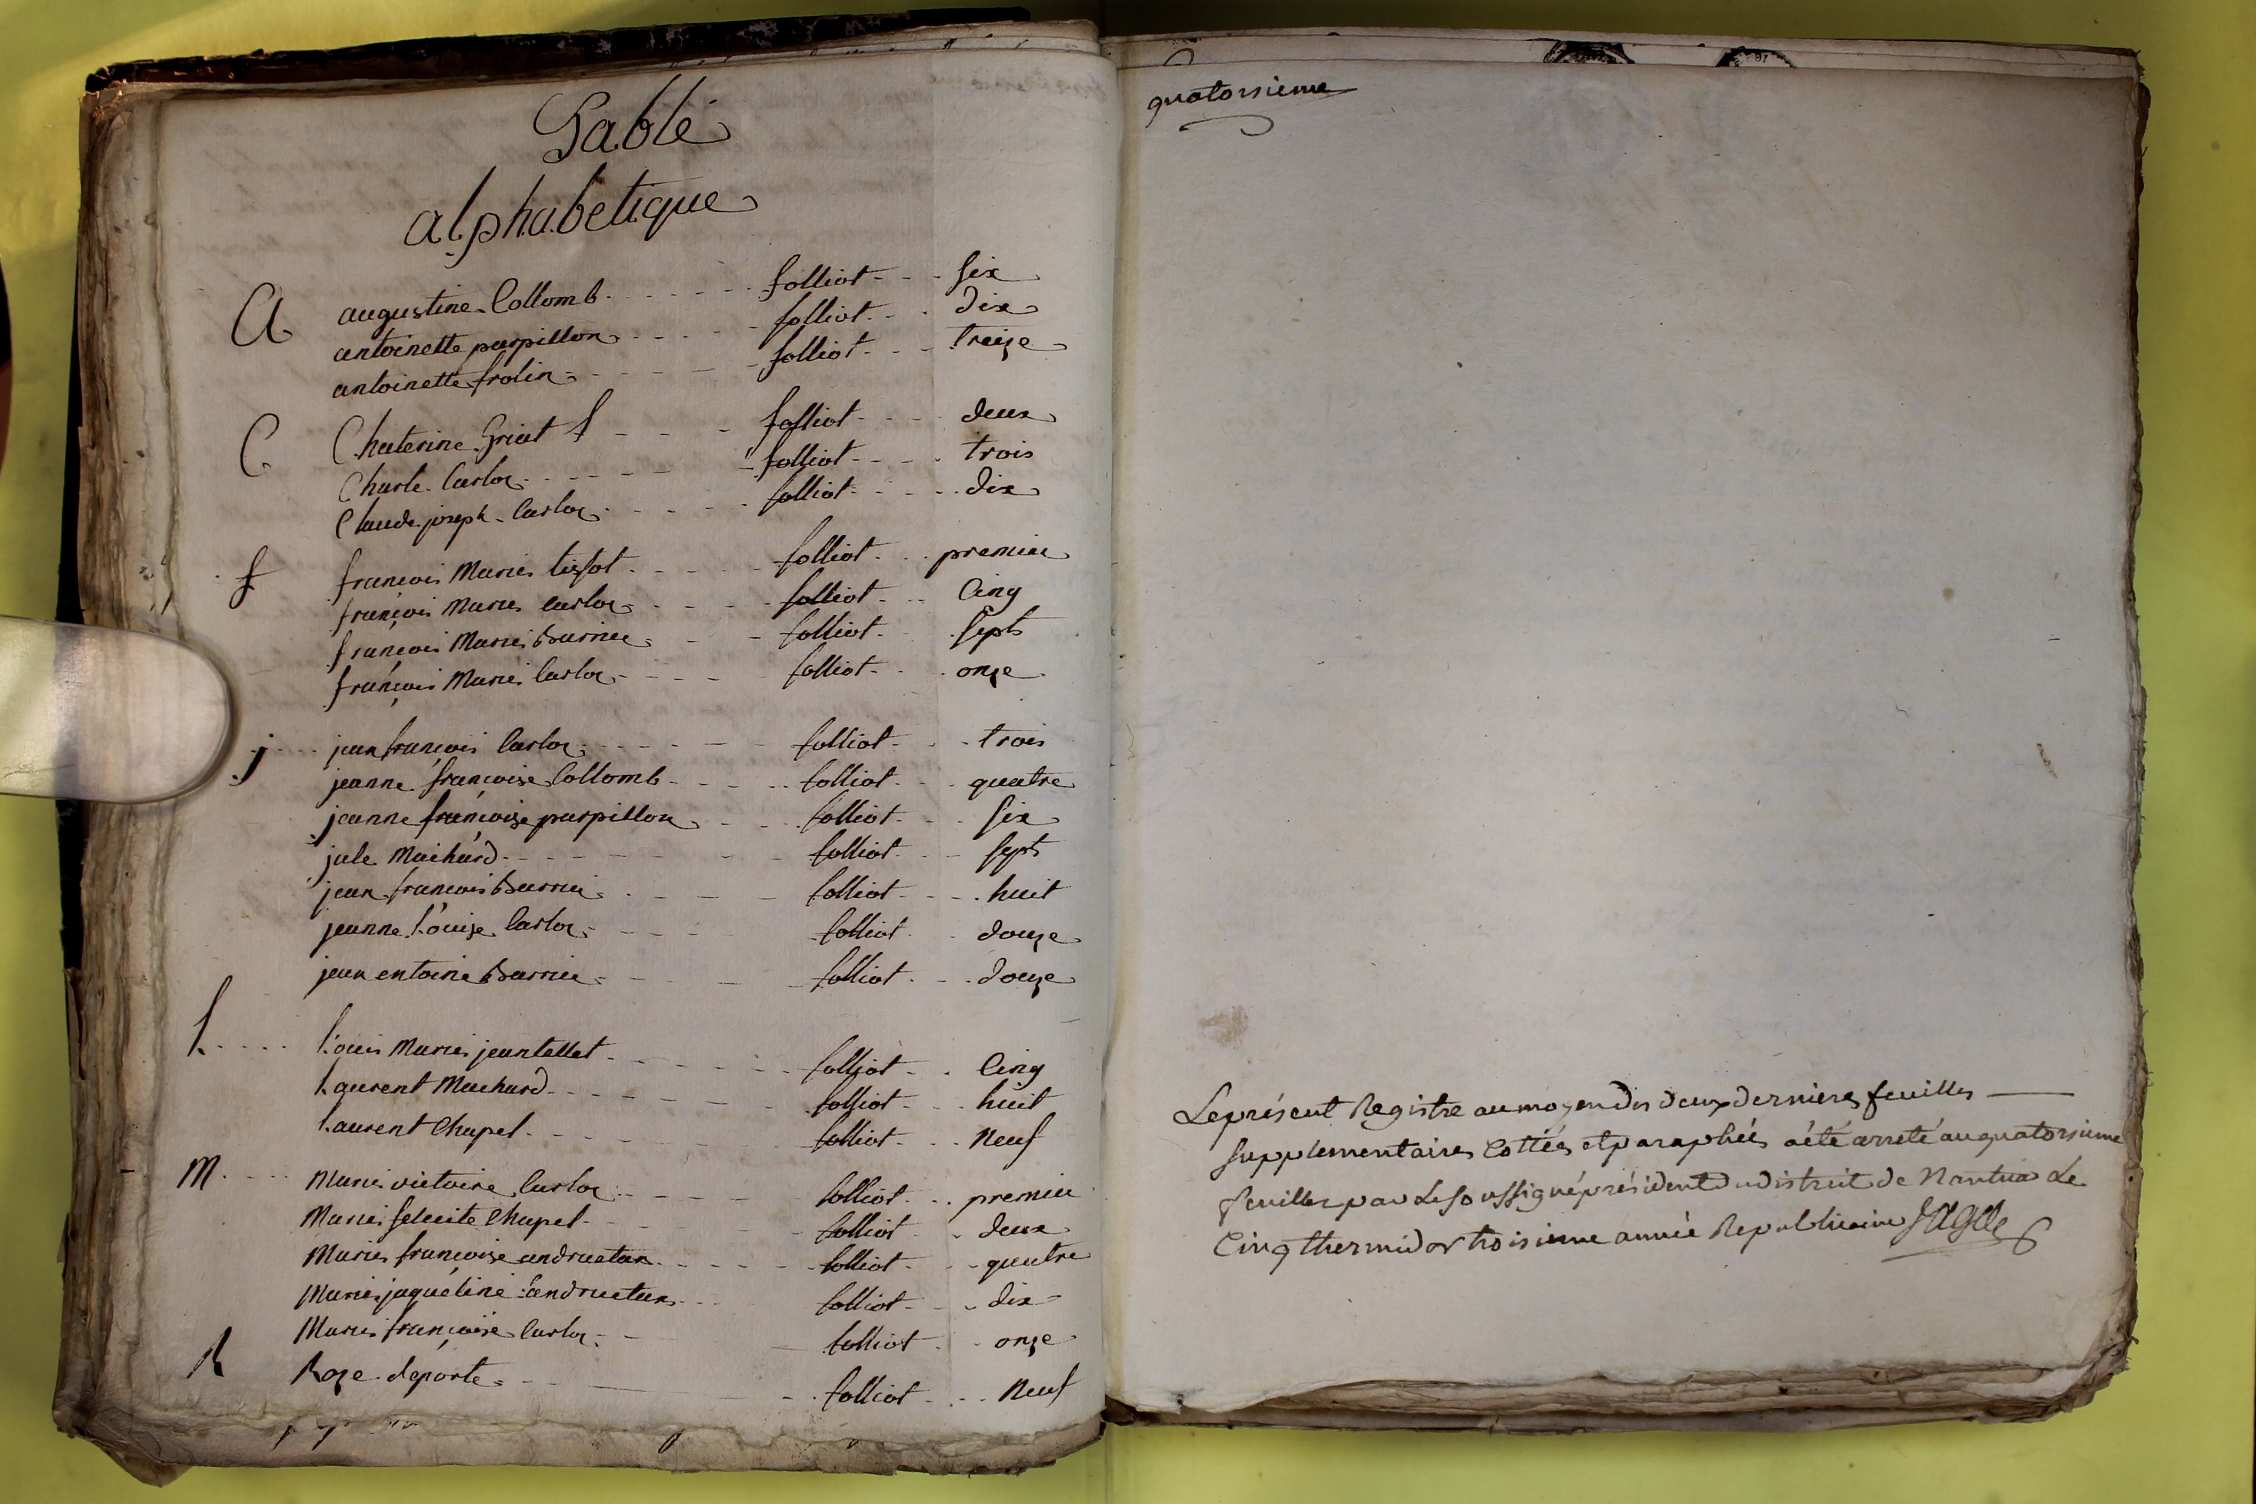 Table
alphabetique
A augustine Collomb folliot six
antoinette parpillon folliot dix
antoinette frolin folliot treize
C Chaterine Griat folliot deux
Charle Carloz folliot trois
Claude joseph Carloz folliot dix
f francois Maries tissot folliot premier
françois Maries Carloz folliot Cinq
françois Maries Burnier folliot septs
françois Maries Carloz folliot onze
j jean françois Carloz folliot trois
jeanne françoise Collomb folliot quatre
jeanne françoise parpillon folliot six
jule Machard folliot septs
jean francois Burnier folliot huit
jeanne Louize Carloz folliot douze
jean entoine Burnier folliot douze
L Louis Maries jeantellet folliot Cinq
Laurent Machard folliot huit
Laurent Chapel folliot Neuf
M Maries victoire Carloz folliot premier
Maries felecite Chapel folliot deux
Maries françoise andruetan folliot quatre
Maries jaqueline andruetan folliot dix
Maries françoise Carloz folliot onze
R Roze deporte folliot Neuf
quatorsieme
Le présent Registre au moyen des deux dernieres feuilles
supplementaires Cottées et paraphées a été arreté au quatorsieme
feuillet par Le soussigné président du district de Nantua Le
Cinq thermidor troisieme année Republicaine